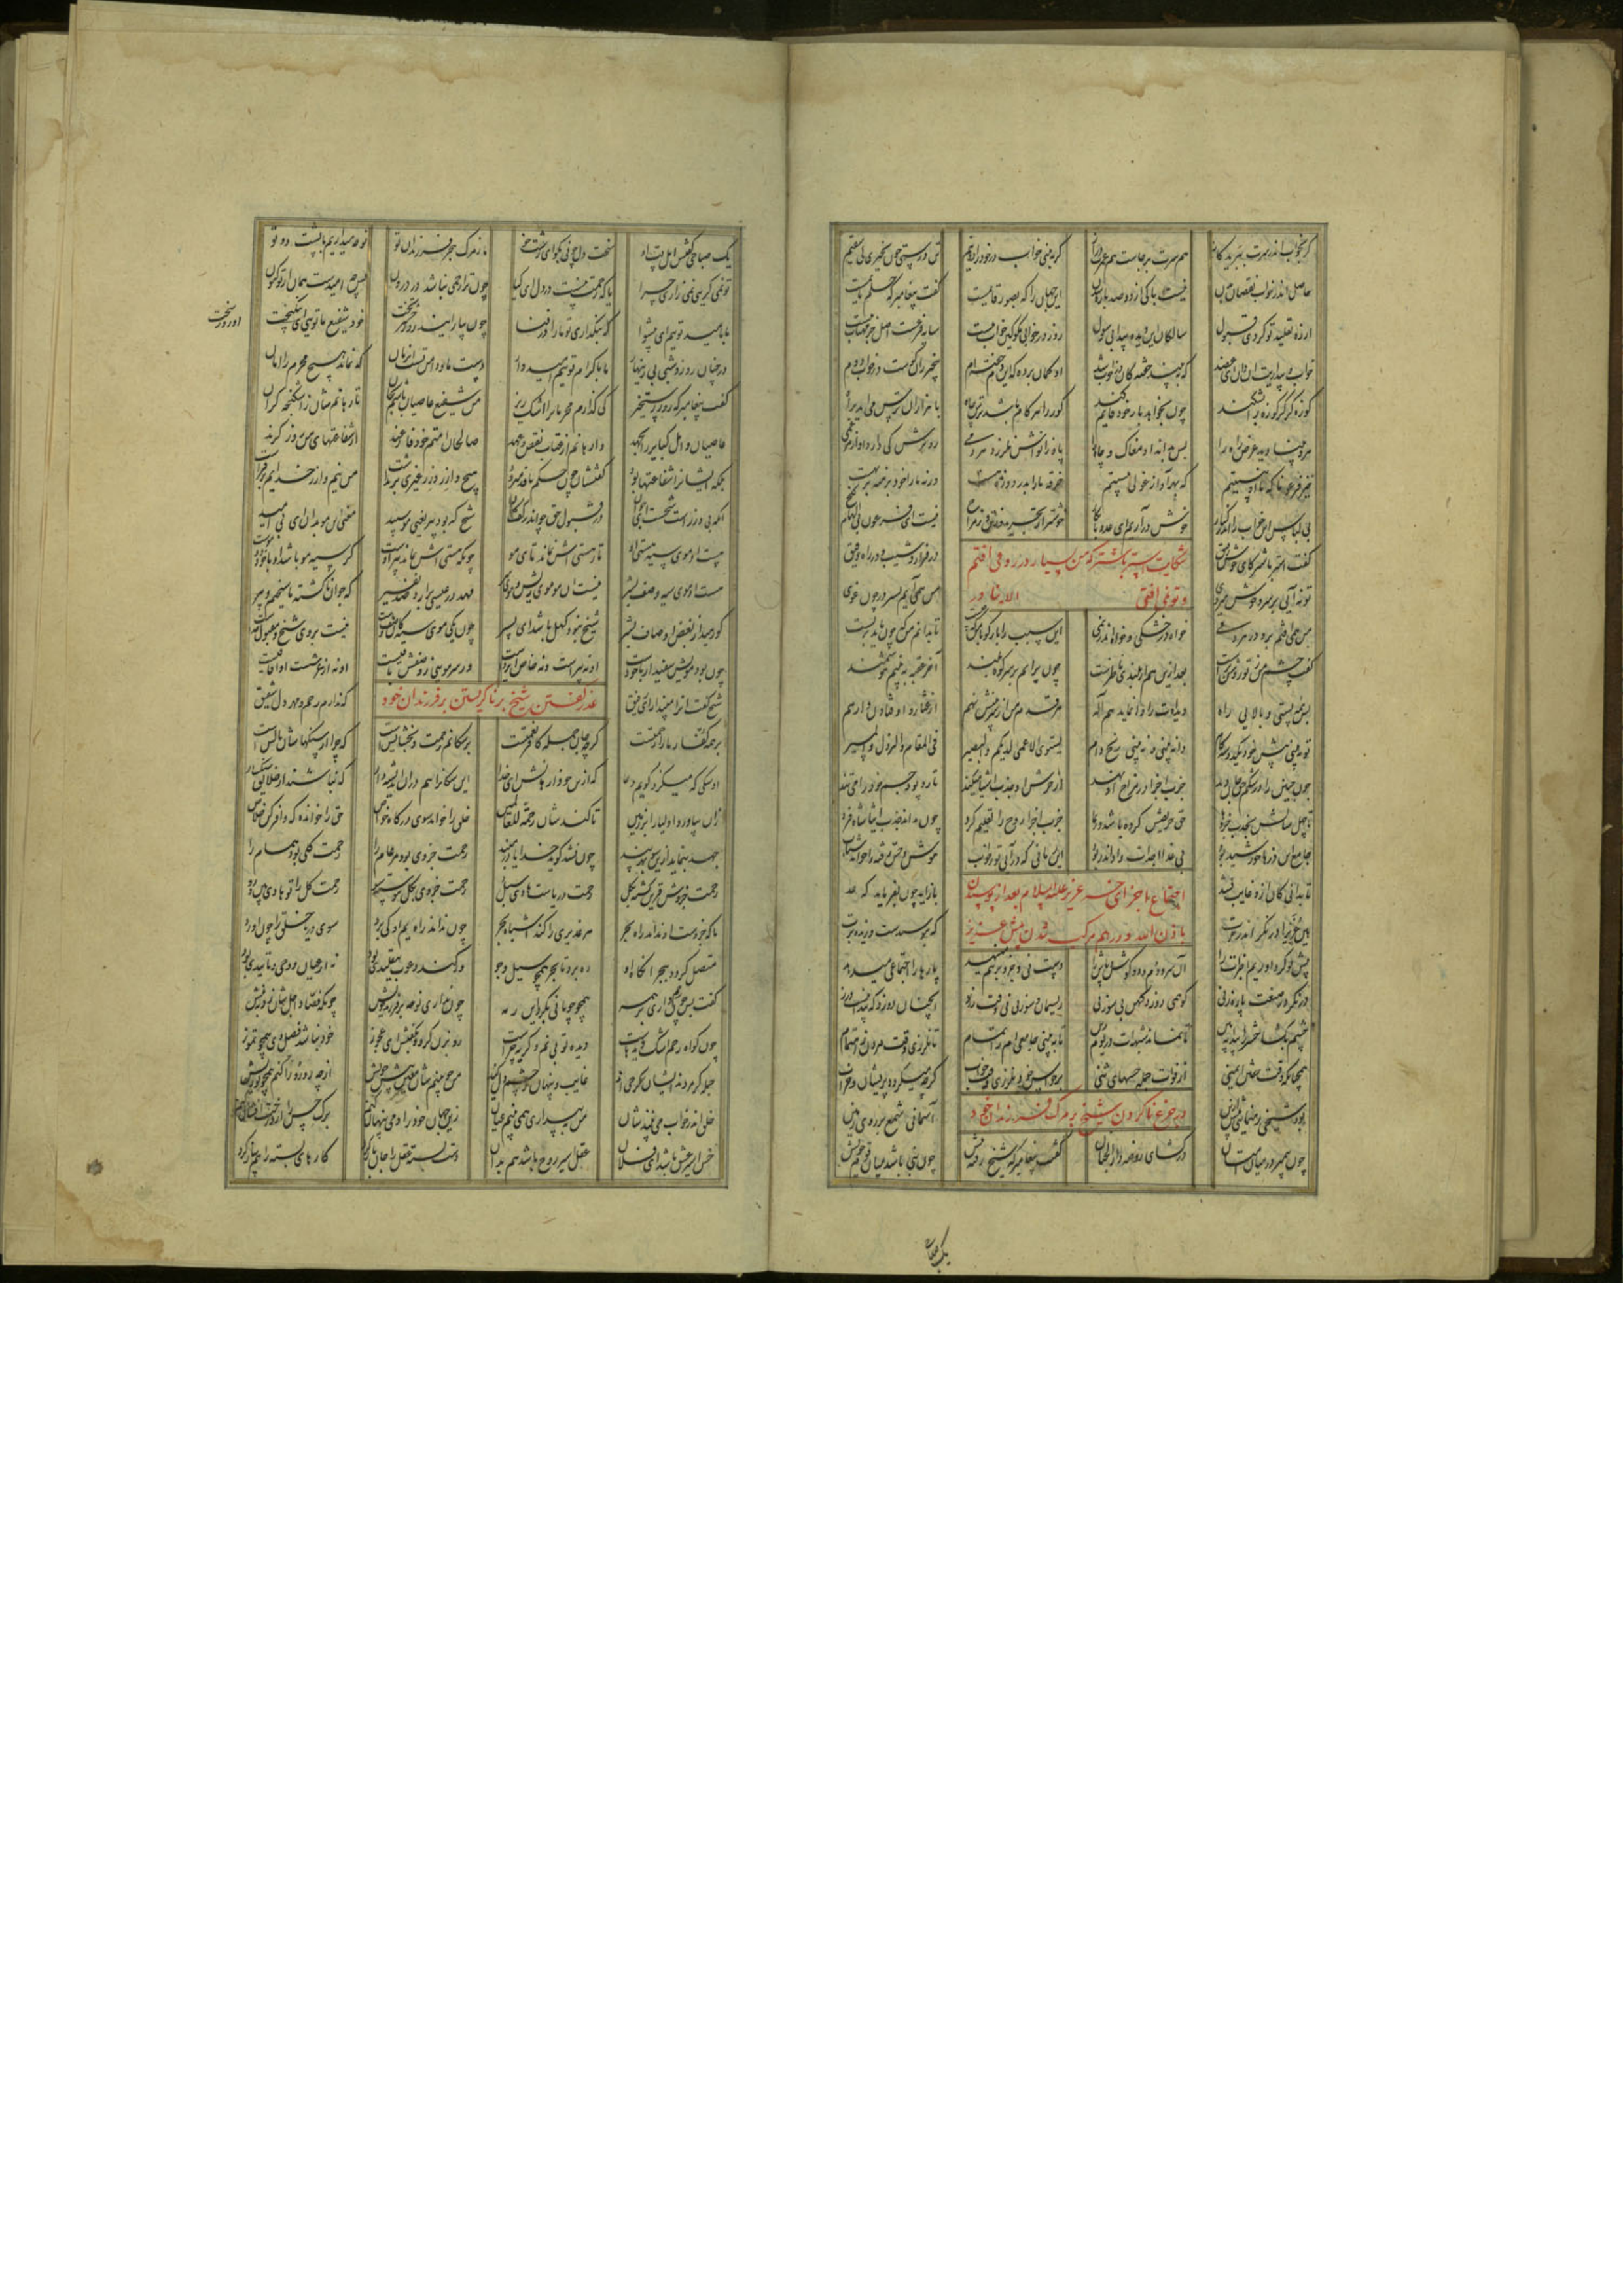 گر بخواب اندر سرت ببرید گاز هم سرت بر جاست هم عمرت دراز گر ببینی خواب در خود را دو نیم تن درستی چون بخیزی نی سقیم
حاصل اندر خواب نقصان بدن نیست باکی از دو صد پاره شدن این جهان را که بصورت قایمست گفت پیغامبر که حلم نایمست
از ره تقلید تو کردی قبول سالکان این دیده پیدا بی رسول روز در خوابی مگو کین خواب نیست سایه فرعست اصل جز مهتاب نیست
خواب بیداریت آن دان ای عضد که ببیند خفته کان در خواب شد او گمان برده که این دم خفته ام بیخبر زان کوست در خواب دوم
کوزه گر گر کوزه را بشکند چون بخواهد باز خود قایم کند کور را هر گام باشد ترس چاه با هزاران ترس می آید براه
مرد بینا دید عرض راه را پس بداند او مغاک و چاه را پا و زانوانش نلرزد هر دمی رو ترش کی دارد او از هر غمی
خیز فرعونا که ما آن نیستیم که بهر آواز غولی بیستیم خرقه ما را بدر دوزنده هست ورنه ما را خود برهنه بهترست
بی لباس این خواب را اندر کنار خوش در آریم ای عدو نابکار خوشتر از تجرید نیست ای فرعون بی الهام
گفت استر با شتر کای خوش رفیق در فراز و شیب و در راه دقیق
شکایت استر با شتر که من بسیار در رو می افتم
و تو نمی افتی الا بنادر
تو نه آیی بر سر و خوش میروی من همی آیم بسر در چون غوی
من همی افتم برو در هر دمی خواه در خشکی و خواه اندر نمی این سبب را باز گو با من که چیست تا بدانم من که چون باید بزیست
گفت چشم من ز تو روشنترست بعد ازین هم از بلندی ناظرست چون برآیم بر سر کوه بلند آخر عقبه ببینم هوشمند
پس همه پستی و بالایی راه دیده‌ام را وا نماید هم اله هر قدم من از سر بینش نهم از عثار و اوفتادن وا رهم
تو نبینی پیش خود یک دو سه گام دانه بینی و نبینی رنج دام یستوی الاعمی لدیکم والبصیر فی المقام والنزول والمسیر
چون جنین را در شکم حق جان دهد جذب اجزا در مزاج او نهد از خورش او جذب اشیا میکند تار و پود جسم خود را می تند
تا چهل سالش بجذب جزوها حق حریصش کرده باشد در نما جذب اجزا روح را تعلیم کرد چون نداند جذب اشیا شاه فرد
جامع این ذرها خورشید بود بی غذا اجزات را داند ربود آن زمانی که در آیی تو ز خواب هوش و حس رفته را خواند شتاب
تا بدانی کان ازو غایب نشد باز آید چون بفرماید که عد
اجتماع اجزای خر عزیر علیه السلام بعد از پوسیدن
باذن الله و در هم مرکب شدن پیش عزیر
هین عزیرا در نگر اندر خرت که بپوسیدست و ریزیده برت
پیش تو گرد آوریم اجزات را آن سر و دم و دو گوش و پاش را دست نی و جزو بر هم مینهد پارها را اجتماعی میدهد
در نگر در صنعت پاره زنی کو همی دوزد کهن بی سوزنی ریسمان و سوزنی نی وقت خرز آنچنان دوزد که پیدا نیست درز
چشم بگشا حشر را پیدا ببین تا نماند شبهه ات در یوم دین تا ببینی جامعی ام را تمام تا نلرزی وقت مردن ز اهتمام
همچنانکه وقت خفتن ایمنی از فوات جمله حسهای تنی بر حواس خود نلرزی وقت خواب گرچه میگردد پریشان و خراب
بود شیخی رهنمایی پیش ازین آسمانی شمع بر روی زمین
در جزع ناکردن شیخ بر مرگ فرزندان خود
چون پیمبر در میان امتان در گشای روضه دار الجنان گفت پیغامبر که شیخ رفته پیش چون نبی باشد میان قوم خویش
یک صباحی
یک صباحی گفتش اهل بیت او سخت دل چونی بگو ای ما ز مرگ و هجر فرزندان تو نوحه میداریم با پشت دو تو
تو نمی گریی نمی زاری چرا یا که رحمت نیست در دل ای کیا چون ترا رحمی نباشد در درون پس چه امیدست مان از تو کنون
ما بامید توییم ای پیشوا که بنگذاری تو ما را در فنا چون بیارایند روز حشر تخت خود شفیع ما تویی
آن روز سخت
در چنان روز و شبی بی زینهار ما باکرام توییم امیدوار دست ما و دامن تست آن زمان که نماند هیچ مجرم را امان
گفت پیغامبر که روز رستخیز کی گذارم مجرمان را اشک ریز من شفیع عاصیان باشم بجان تا رهانم شان ز اشکنجه گران
عاصیان و اهل کبایر را بجهد وا رهانم از عتاب نقض عهد صالحان امتم خود فارغند از شفاعتهای من روز گزند
بلکه ایشان را شفاعتها بود گفتشان چون حکم نافذ میرود هیچ وازر وزر غیری بر نداشت من نیم وازر خدایم بر فراشت
آنکه بی وزرست شیخست ای جوان در قبول حق چو اندر کف کمان شیخ که بود پیر یعنی مو سپید معنی این مو بدان ای بی امید
هست آن موی سیه هستی او تا ز هستی اش نماند تای مو چونکه هستی اش نماند پیر اوست گر سیه مو باشد او یا خود دوموست
هست آن موی سیه وصف بشر نیست آن مو موی ریش و موی سر که جوان ناگشته ما شیخیم و پیر
گر رهید از بعض اوصاف بشر شیخ نبود کهل باشد ای پسر چون یکی موی سیه کان وصف ماست نیست بر وی شیخ و مقبول خداست
چون بود مویش سفید ار با خودست او نه پیرست و نه خاص ایزدست ور سر مویی ز وصفش باقیست او نه از عرشست او آفاقیست
شیخ گفت او را مپندار ای رفیق که ندارم رحم و مهر و دل شفیق
عذر گفتن شیخ بر ناگریستن بر فرزندان خود
بر همه کفار ما را رحمتست گرچه جان جمله کافر نعمتست بر سگانم رحمت و بخشایشست که چرا از سنگهاشان مالشست
آن سگی که میگزد گویم دعا که ازین خو وا رهانش ای خدا این سگان را هم در آن اندیشه دار که نباشند از خلایق سنگسار
زان بیاورد اولیا را بر زمین تا کندشان رحمة للعالمین خلق را خواند سوی درگاه خاص حق را خوانده که وافر کن خلاص
جهد بنماید ازین سو بهر پند چون نشد گوید خدایا در مبند رحمت جزوی بود مر عام را رحمت کلی بود همام را
رحمت جزوش قرین گشته بکل رحمت دریاست هادی سبل رحمت جزوی بکل پیوسته شو رحمت کل را تو هادی بین و رو
تا که جزوست او نداند راه بحر هر غدیری را کند اشباه بحر چون نداند راه یم او کی برد سوی دریا خلق را چون آورد
متصل گردد ببحر آنگاه او ره برد تا بحر همچو سیل و جو ور کند دعوت بتقلیدی بود نه از عیان و وحی و تاییدی بود
گفت پس چون رحم داری بر همه همچو چوپانی بگرد این رمه چون نداری نوحه بر فرزند خویش چونکه فصاد اجل شان زد بنیش
چون گواه رحم اشک دیدهاست دیده تو بی نم و گریه چراست رو بزن کرد و بگفتش ای عجوز خود نباشد فصل دی همچو تموز
جمله گر مردند ایشان گر حی اند غایب و پنهان ز چشم دل کی اند من چو بینم شان معین پیش خویش از چه رو رو را کنم همچو تو ریش
خلق اندر خواب می بینند شان من ببیداری همی بینم عیان زین جهان خود را دمی پنهان کنم برگ حس را از درخت افشان کنم
حس اسیر عقل باشد ای فلان عقل اسیر روح باشد هم بدان دست بسته عقل را جان باز کرد کارهای بسته را هم ساز کرد